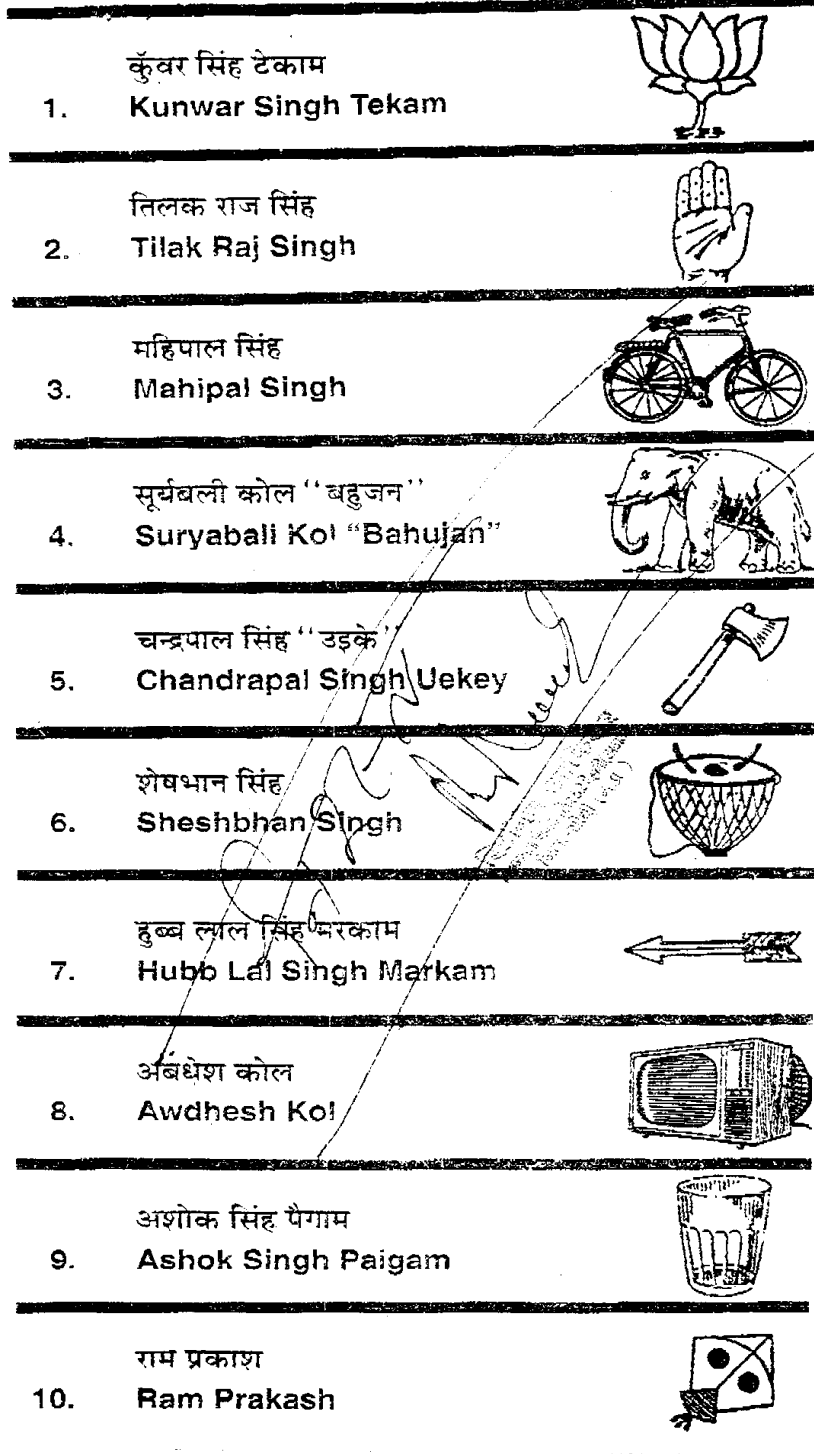 कुँवर सिंह टेकाम
1. Kunwar Singh Tekam
तिलक राज सिंह
2. Tilak Raj Singh
महिपाल सिंह
3. Mahipal Singh
सूर्यबली कोल ‘‘बहुजन’’
4. Suryabali Kol “Bahujan”
चन्द्रपाल सिंह ‘‘उइके’’
5. Chandrapal Singh Uekey
शेषभान सिंह
6. Sheshbhan Singh
हुब्ब लाल सिंह मरकाम
7. Hubb Lal Singh Markam
अबधेश कोल
8. Awdhesh Kol
अशोक सिंह पैगाम
9. Ashok Singh Paigam
राम प्रकाश
10. Ram Prakash